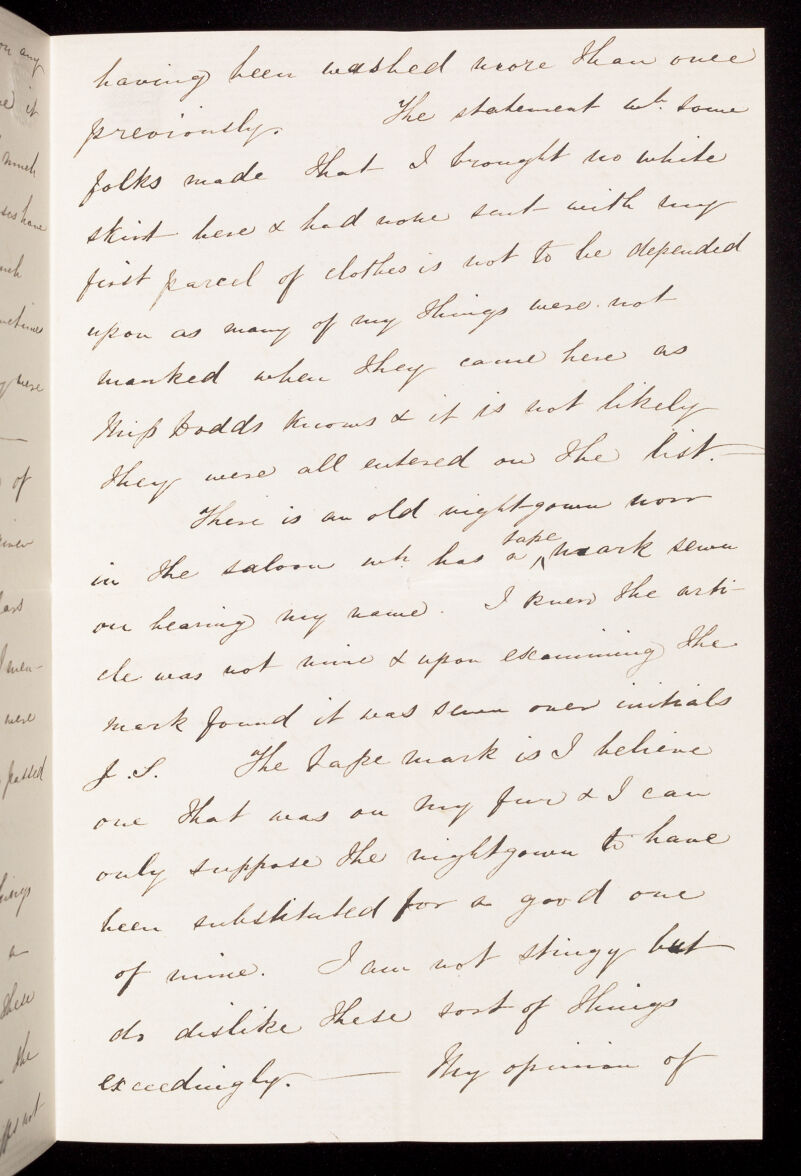 having been washed more than once
previously. The statement wh. some
folks made that I brought no white
skirt here & had none sent with my
first parcel of clothes is not to be depended
upon as many of my things were not
marked when they came here as
Miss Dodds knows & it is not likely
they were all entered on the list. —
There is an old nightgown now
in the saloon wh. has a ^tape mark sewn
on bearing my name. I knew the arti-
cle was not mine & upon examining the
mark found it was sewn over initials
J.S. The tape mark is I believe
one that was on my fur & I can
only suppose the nightgown to have
been substituted for a good one
of mine. I am not stingy but
do dislike these sort of things
exceedingly. — My opinion of
on any
it
much
have
sometime
were
—
of
were
passed
a
these
the
not